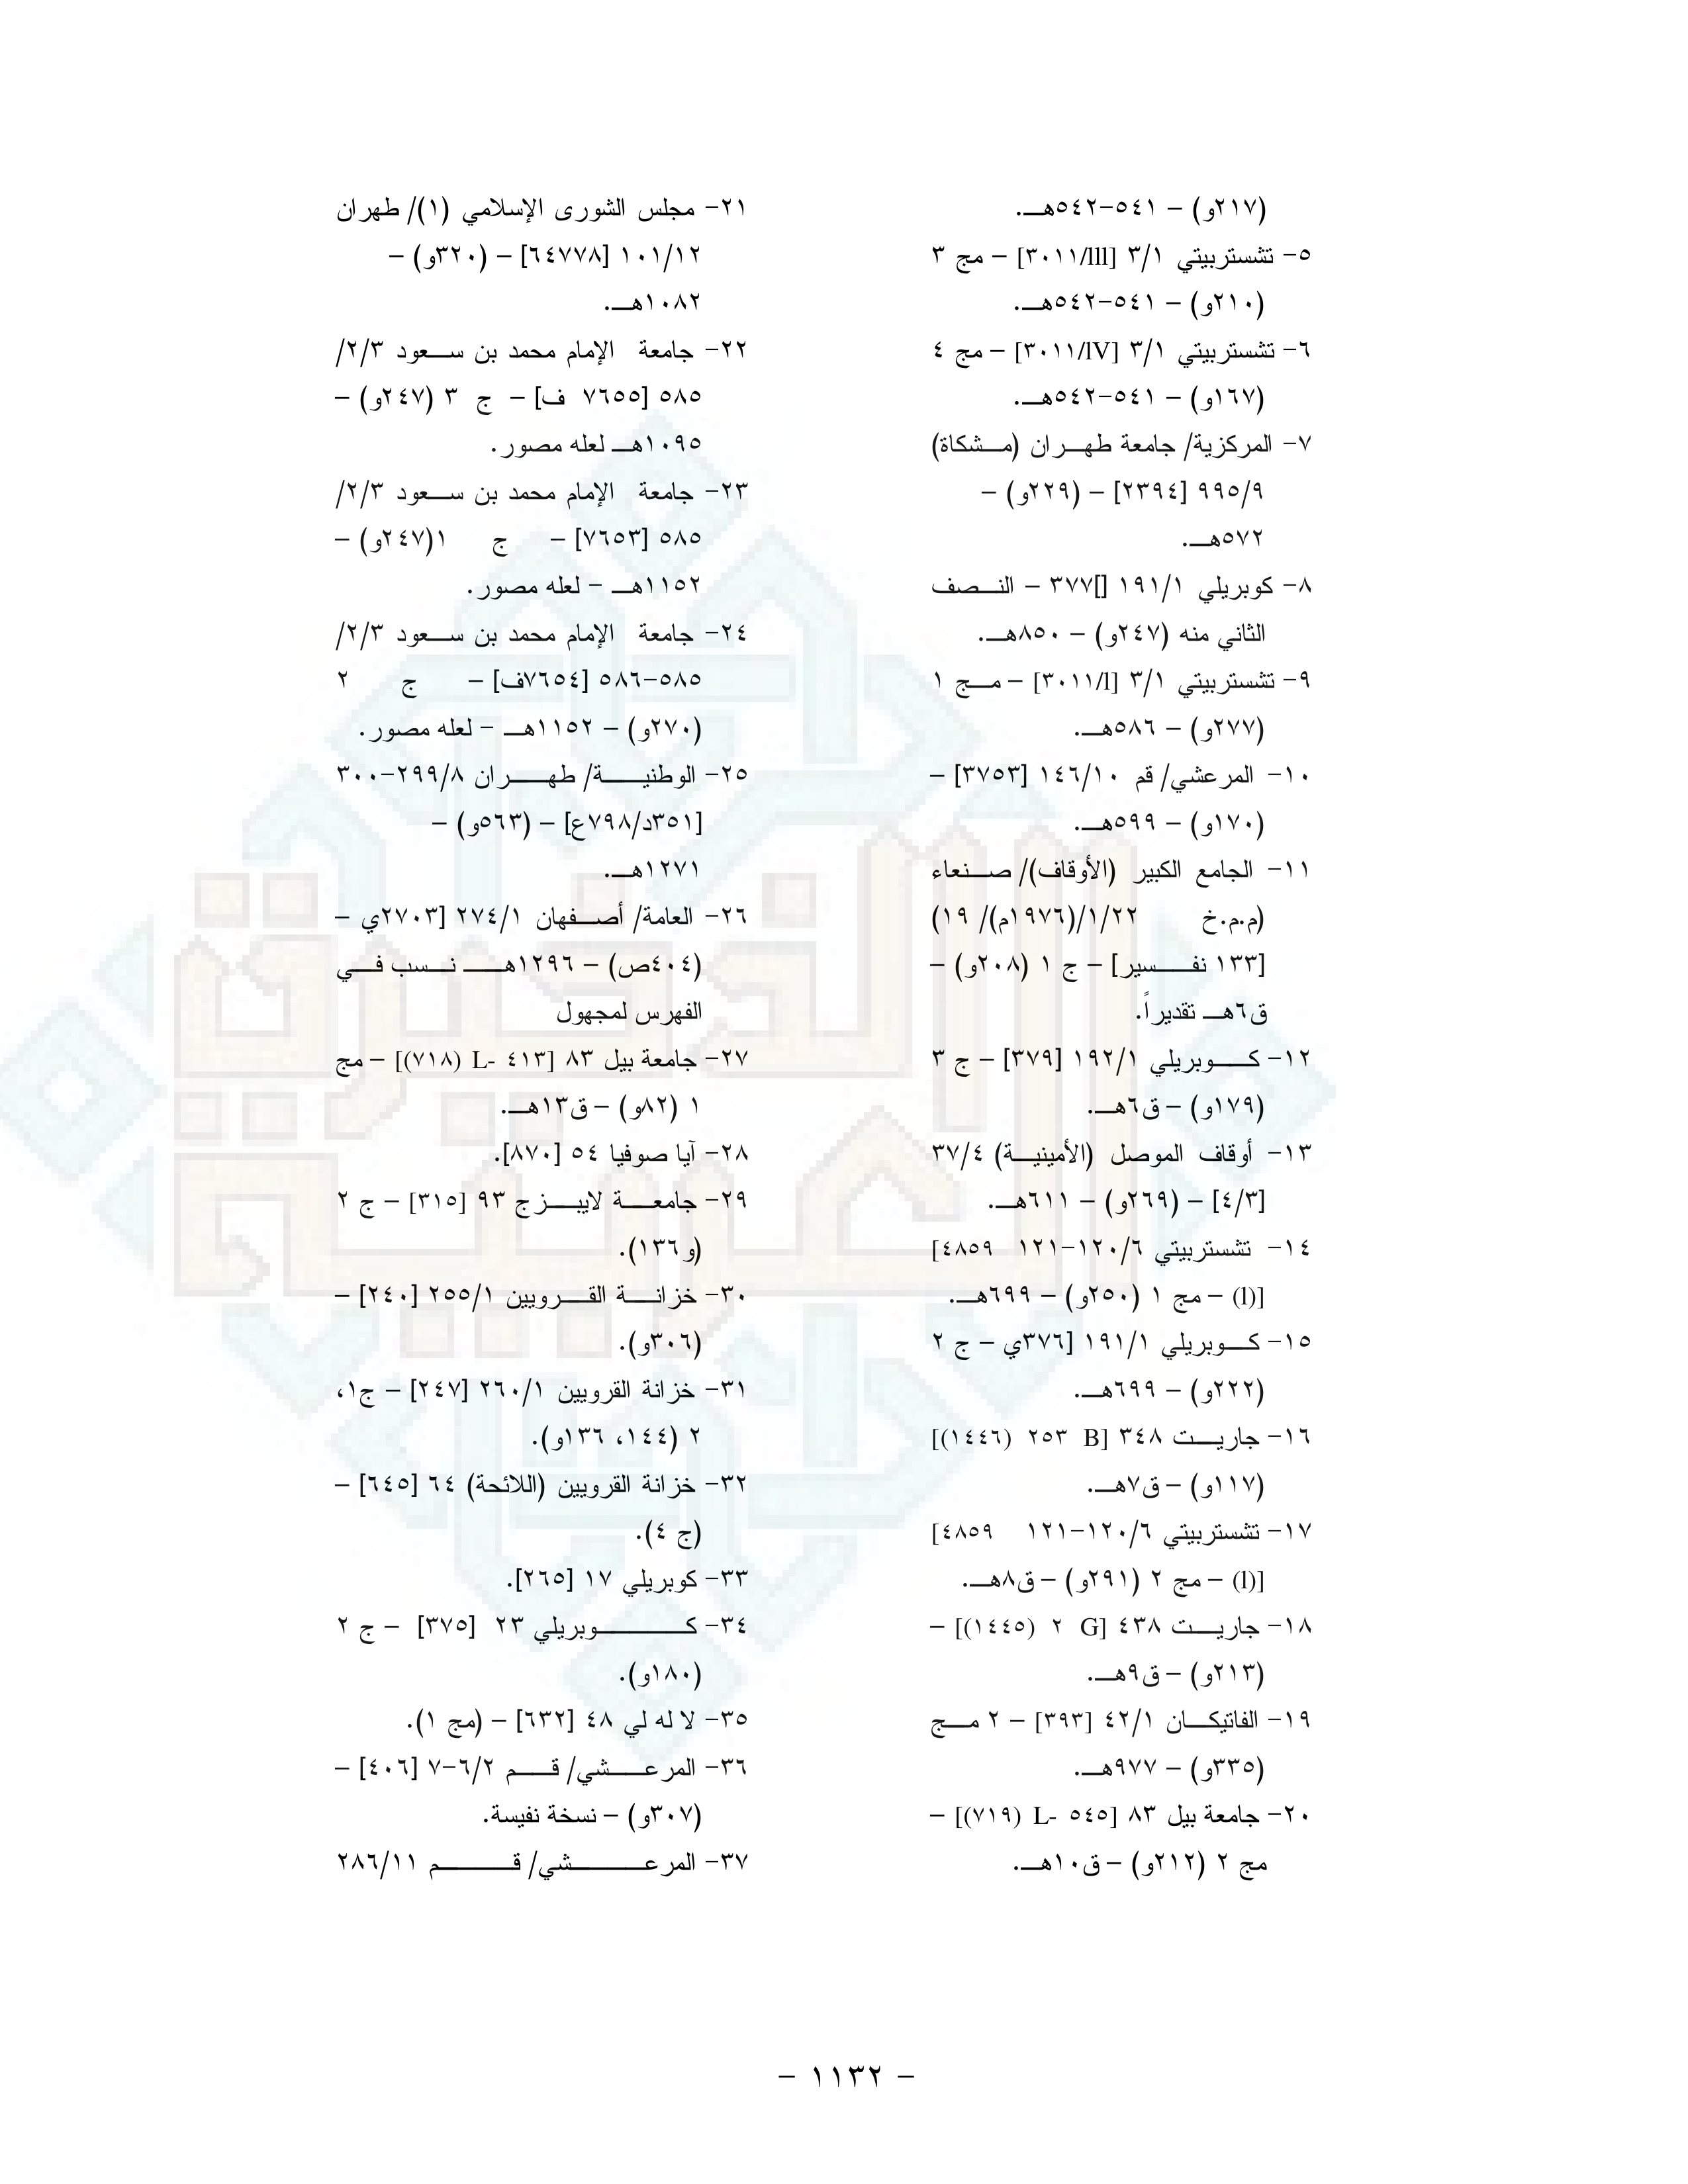 (٢١٧و) – ٥٤١-٥٤٢هـ.
٥- تشستربيتي ٣/١ [٣٠١١/lll] – مج ٣
(٢١٠و) – ٥٤١-٥٤٢هـ.
٦- تشستربيتي ٣/١ [٣٠١١/lV] – مج ٤
(١٦٧و) – ٥٤١-٥٤٢هـ.
٧- المركزية/ جامعة طهران (مشكاة)
٩٩٥/٩ [٢٣٩٤] – (٢٢٩و) –
٥٧٢هـ.
٨- كوبريلي ١٩١/١ []٣٧٧ – النصف
الثاني منه (٢٤٧و) – ٨٥٠هـ.
٩- تشستربيتي ٣/١ [٣٠١١/l] – مج ١
(٢٧٧و) – ٥٨٦هـ.
١٠- المرعشي/ قم ١٤٦/١٠ [٣٧٥٣] –
(١٧٠و) – ٥٩٩هـ.
١١- الجامع الكبير (الأوقاف)/ صنعاء
(م.م.خ ١/٢٢/(١٩٧٦م)/ ١٩)
[١٣٣ نفسير] – ج ١ (٢٠٨و) –
ق٦هـ تقديراً.
١٢- كوبريلي ١٩٢/١ [٣٧٩] – ج ٣
(١٧٩و) – ق٦هـ.
١٣- أوقاف الموصل (الأمينية) ٣٧/٤
[٤/٣] – (٢٦٩و) – ٦١١هـ.
١٤- تشستربيتي ١٢٠/٦-١٢١ ٤٨٥٩]
[(l) – مج ١ (٢٥٠و) – ٦٩٩هـ.
١٥- كوبريلي ١٩١/١ [٣٧٦ي – ج ٢
(٢٢٢و) – ٦٩٩هـ.
١٦- جاريت ٣٤٨ [B ٢٥٣ (١٤٤٦)]
(١١٧و) – ق٧هـ.
١٧- تشستربيتي ١٢٠/٦-١٢١ ٤٨٥٩]
[(l) – مج ٢ (٢٩١و) – ق٨هـ.
١٨- جاريت ٤٣٨ [G ٢ (١٤٤٥)] –
(٢١٣و) – ق٩هـ.
١٩- الفاتيكان ٤٢/١ [٣٩٣] – ٢ مج
(٣٣٥و) – ٩٧٧هـ.
٢٠- جامعة بيل ٨٣ [L- ٥٤٥ (٧١٩)] –
مج ٢ (٢١٢و) – ق١٠هـ.
٢١- مجلس الشورى الإسلامي (١)/ طهران
١٠١/١٢ [٦٤٧٧٨] – (٣٢٠و) –
١٠٨٢هـ.
٢٢- جامعة الإمام محمد بن سعود ٢/٣/
٥٨٥ [٧٦٥٥ ف] – ج ٣ (٢٤٧و) –
١٠٩٥هـ لعله مصور.
٢٣- جامعة الإمام محمد بن سعود ٢/٣/
٥٨٥ [٧٦٥٣] – ج ١(٢٤٧و) –
١١٥٢هـ – لعله مصور.
٢٤- جامعة الإمام محمد بن سعود ٢/٣/
٥٨٥-٥٨٦ [٧٦٥٤ف] – ج ٢
(٢٧٠و) – ١١٥٢هـ – لعله مصور.
٢٥- الوطنية/ طهران ٢٩٩/٨-٣٠٠
[٣٥١د/٧٩٨ع] – (٥٦٣و) –
١٢٧١هـ.
٢٦- العامة/ أصفهان ٢٧٤/١ [٢٧٠٣ي –
(٤٠٤ص) – ١٢٩٦هـ نسب في
الفهرس لمجهول
٢٧- جامعة بيل ٨٣ [L- ٤١٣ (٧١٨)] – مج
١ (٨٢و) – ق١٣هـ.
٢٨- آيا صوفيا ٥٤ [٨٧٠].
٢٩- جامعة لايبزج ٩٣ [٣١٥] – ج ٢
(و١٣٦).
٣٠- خزانة القرويين ٢٥٥/١ [٢٤٠] –
(٣٠٦و).
٣١- خزانة القرويين ٢٦٠/١ [٢٤٧] – ج١،
٢ (١٤٤، ١٣٦و).
٣٢- خزانة القرويين (اللائحة) ٦٤ [٦٤٥] –
(ج ٤).
٣٣- كوبريلي ١٧ [٢٦٥].
٣٤- كوبريلي ٢٣ [٣٧٥] – ج ٢
(١٨٠و).
٣٥- لا له لي ٤٨ [٦٣٢] – (مج ١).
٣٦- المرعشي/ قم ٦/٢-٧ [٤٠٦] –
(٣٠٧و) – نسخة نفيسة.
٣٧- المرعشي/ قم ٢٨٦/١١
– ١١٣٢ –
الذخيرة
العربية